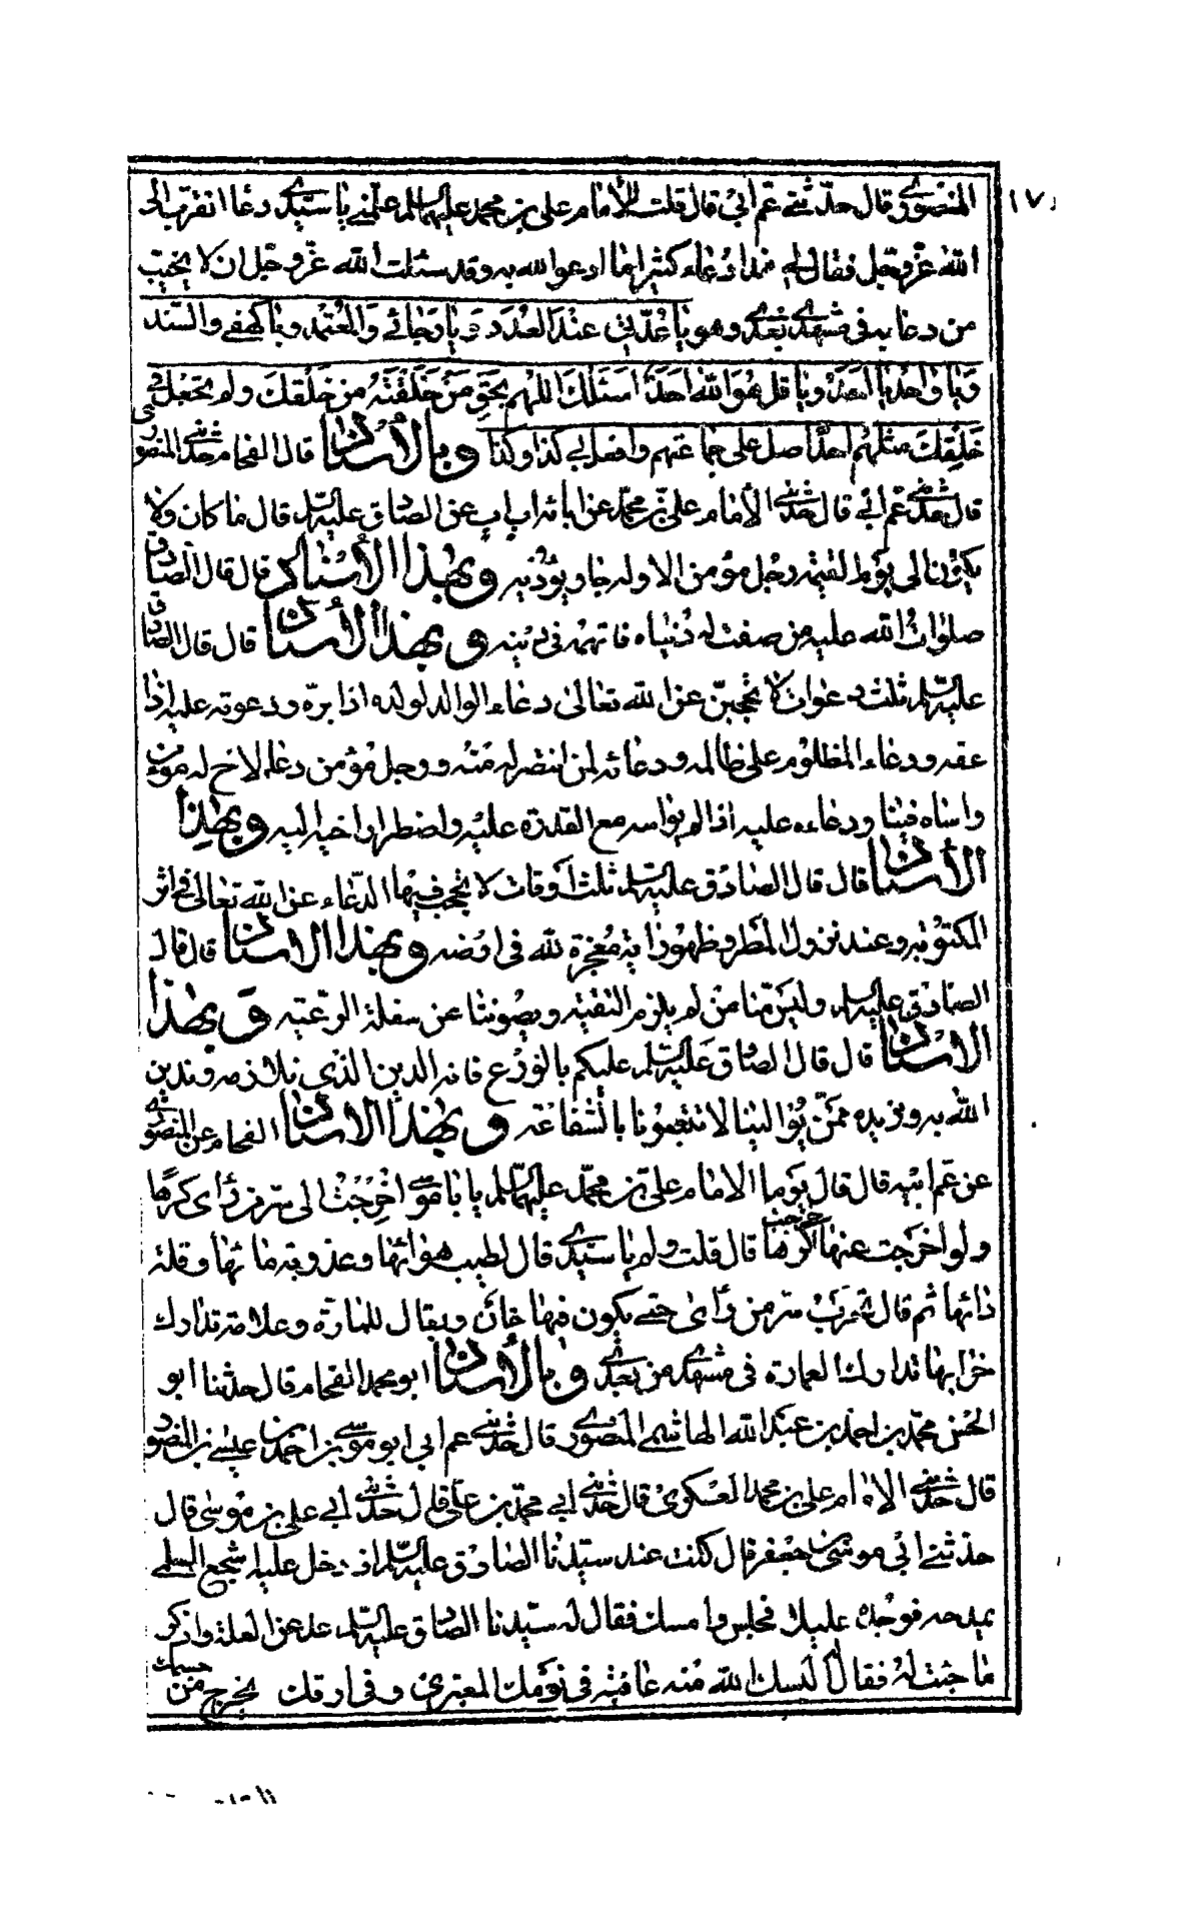 المنصوری قال حدّثنی عم ابی قال قلت للأمام علی بن محمد علیهما السلم علمنی یا سیدی دعاء اتقرب الی
الله عز وجل فقال لی هذا دعاء کثیرا ما ادعوا الله به وقد سئلت الله عزّ وجل ان لا یخیب
من دعا به فی مشهدی بعدی وهو یا عُدّتی عند العُدَد وَ یا رجائی وَ المُعتمد ویا کهفی والسّند
وَیا واحد یا احد ویا قل هُوَ اللهُ احَد اَسئَلُکَ اللهم بحَقِ مَنْ خَلَقتَهُ مِن خَلقِکَ ولم تجعَل فی
خَلقِکَ مثلهُم احَدًا صل علی جماعتهم وافعل بی کذا وکذا وبالأسناد قال الفحام حدثنی المنصوری
قال حدثنی عم ابی قال حدثنی الأمام علی بن محمّد عن ابائه اب اب عن الصادق علیه السلم قال ما کان ولا
یکون الی یوم القیمة رجل مؤمن الا وله جار یؤذیه وبهذا الأسناد قال قال الصادق
صلوات الله علیه من صفت له دُنیاه فاتهمه فی دینه وبهذا الأسناد قال قال الصادق
علیه السلم ثلث دعوات لا یحجبن عن الله تعالی دعاء الوالد لولده اذا برّه ودعوته علیه اذا
عقه ودعاء المظلوم علی ظالمه ودعائه لمن انتصر له منه ورجل مؤمن دعا لاخ له مؤمن
واساه فینا ودعاءه علیه اذا لم یواسه مع القدرة علیه واضطرار اخیه الیه وبهذا
الأسناد قال قال الصادق علیه السلم ثلث اوقات لا یحجب فیها الدّعاء عن الله تعالی فی اثر
المکتوبة وعند نزول المطر وظهور ایة مُعجزة لله فی ارضه وبهذا الاسناد قال قال
الصادق علیه السلم ولیس منّا من لم یلزم التقیة ویصوننا عن سفلة الرعیة وبهذا
الاسناد قال قال الصادق عَلیه السلم علیکم بالورَع فانه الدین الذی نلازمه وندین
الله به ونریده ممّن یُوالینا لا تتعبونا بالشفاعة وبهذا الاسناد الفحام عن المنصوری
عن عم ابیه قال قال یوما الامام علی بن محمّد علیهما السلم یابا موسی اخرجت الی سر من رای کرها
ولو اخرجت عنها خرجت کرها قال قلت ولم یا سیدی قال لطیب هوائها وعذوبة مائها وقلة
دائها ثم قال تخرب سر من رای حتی یکون فیها خان ویقال للمارة وعلامة تدارک
خرابها تدارک العمارة فی مشهدی من بعدی وبالأسناد ابو محمد الفحام قال حدثنا ابو
الحسن محمّد بن احمد بن عبَید الله الهاشمی المنصوری قال حدثنی عم ابی ابو موسی بن احمد بن عیسی بن المنصور
قال حدثنی الامام علی بن محمد العسکری قال حدثنی ابی محمّد بن علی قال حدثنی ابی علی بن موسی قال
حدثنی ابی موسی بن جعفر قال کنت عند سیدنا الصادق علیه السلم اذ دخل علیه اشجع السلمی
یمدحه فوجده علیلا فجلس وامسک فقال له سیدنا الصادق علیه السلم عد عن العلة واذکر
ما جئت له فقال له البسک الله منه عافیة فی نومک المعتری وفی ارقک یخرج من جسمک